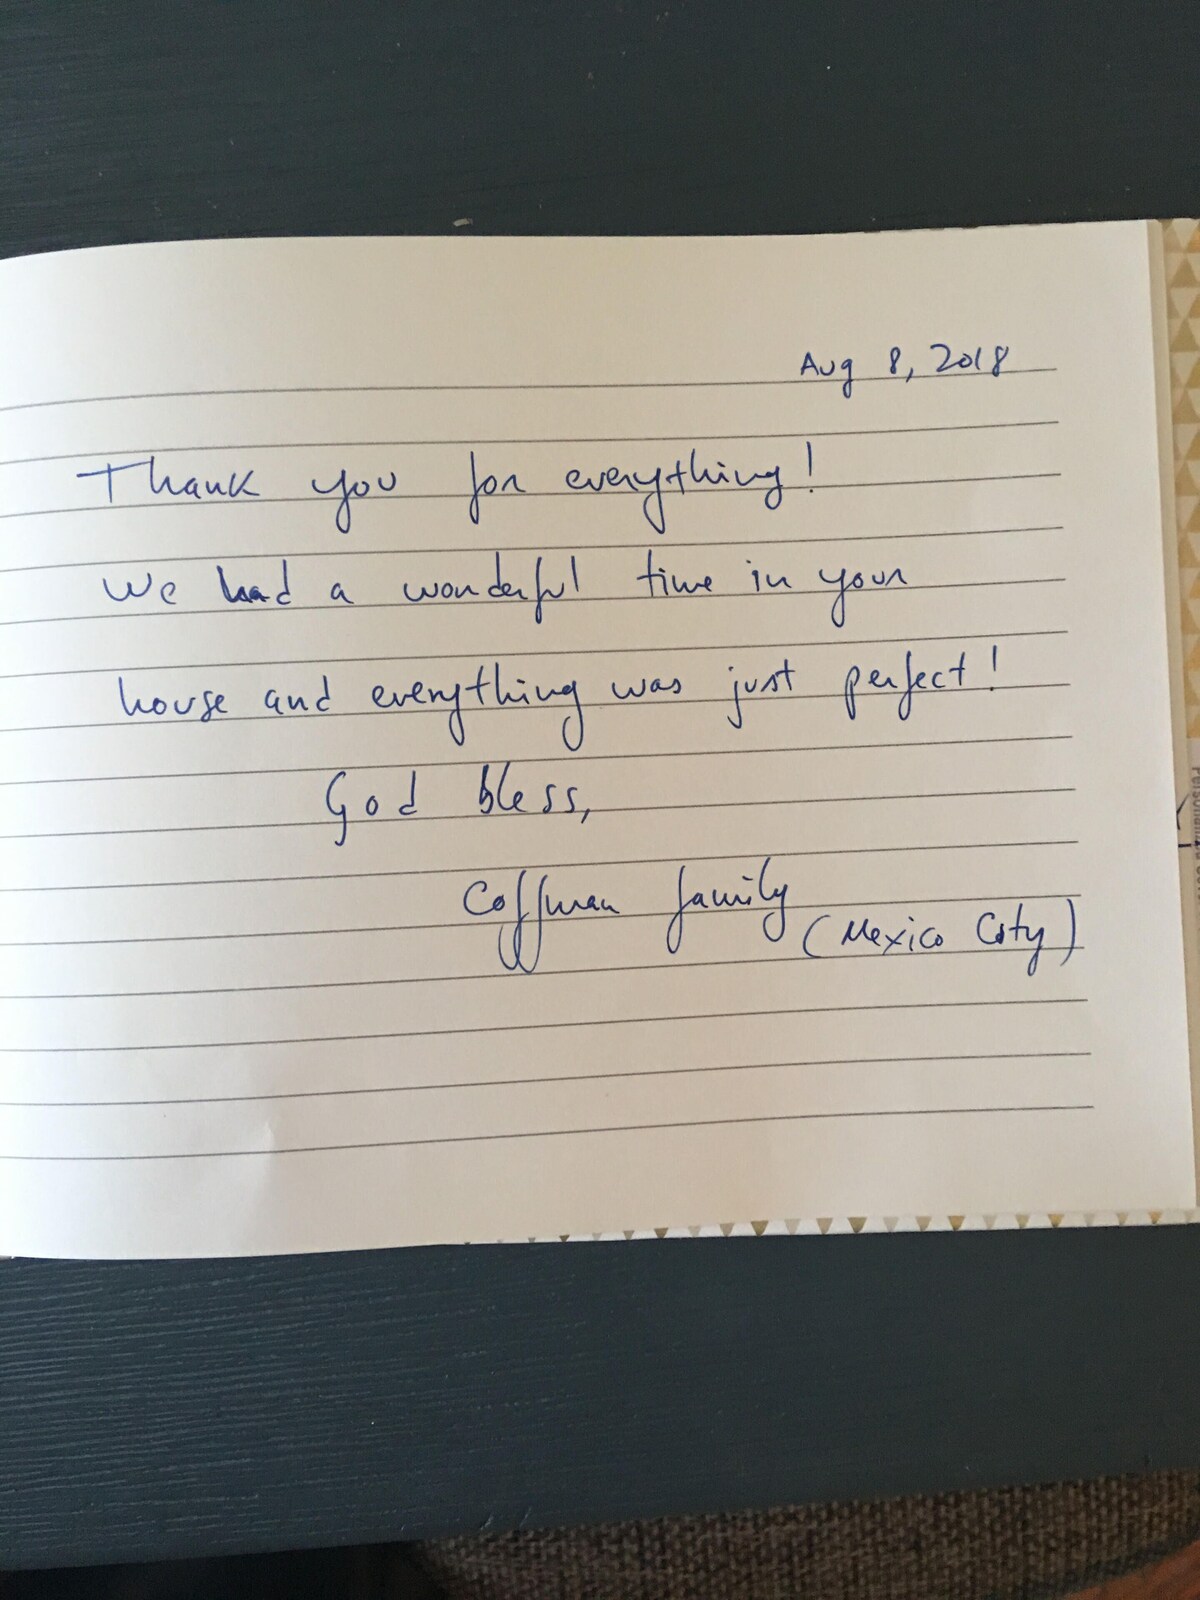 Aug 8, 2018
Thank you for everything!
We had a wonderful time in your
house and everything was just perfect!
God bless,
Coffman family
(Mexico City)